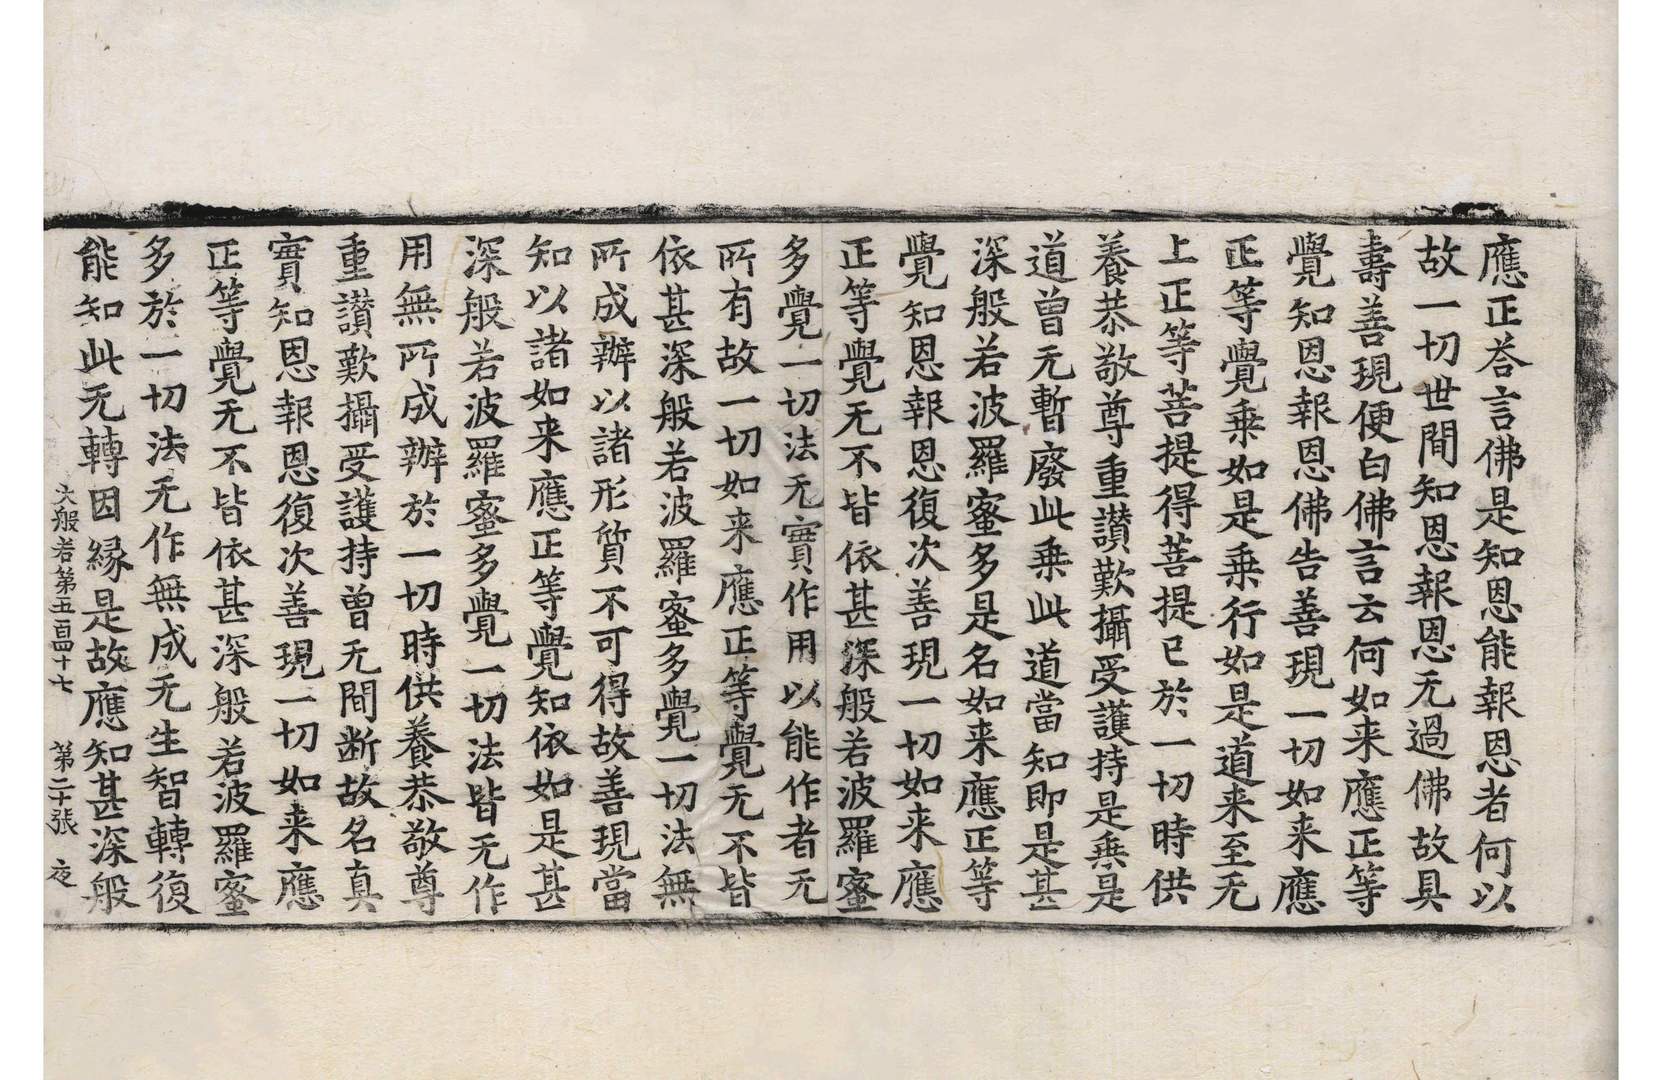 應正荅言佛是知恩能報恩者何以
故一切世間知恩報恩无過佛故具
壽善現便白佛言云何如来應正等
覺知恩報恩佛告善現一切如来應
正等覺乗如是乗行如是道来至无
上正等菩提得菩提已於一切時供
養恭敬尊重讃歎攝受護持是乗是
道曾无暫廢此乗此道當知即是甚
深般若波羅蜜多是名如来應正等
覺知恩報恩復次善現一切如来應
正等覺无不皆依甚深般若波羅蜜
多覺一切法无實作用以能作者无
所有故一切如来應正等覺无不皆
依甚深般若波羅蜜多覺一切法無
所成辦以諸形質不可得故善現當
知以諸如来應正等覺知依如是甚
深般若波羅蜜多覺一切法皆无作
用無所成辦於一切時供養恭敬尊
重讃歎攝受護持曾无間断故名真
實知恩報恩復次善現一切如来應
正等覺无不皆依甚深般若波羅蜜
多於一切法无作無成无生智轉復
能知此无轉因縁是故應知甚深般
大般若第五百四十七　第二十張　夜